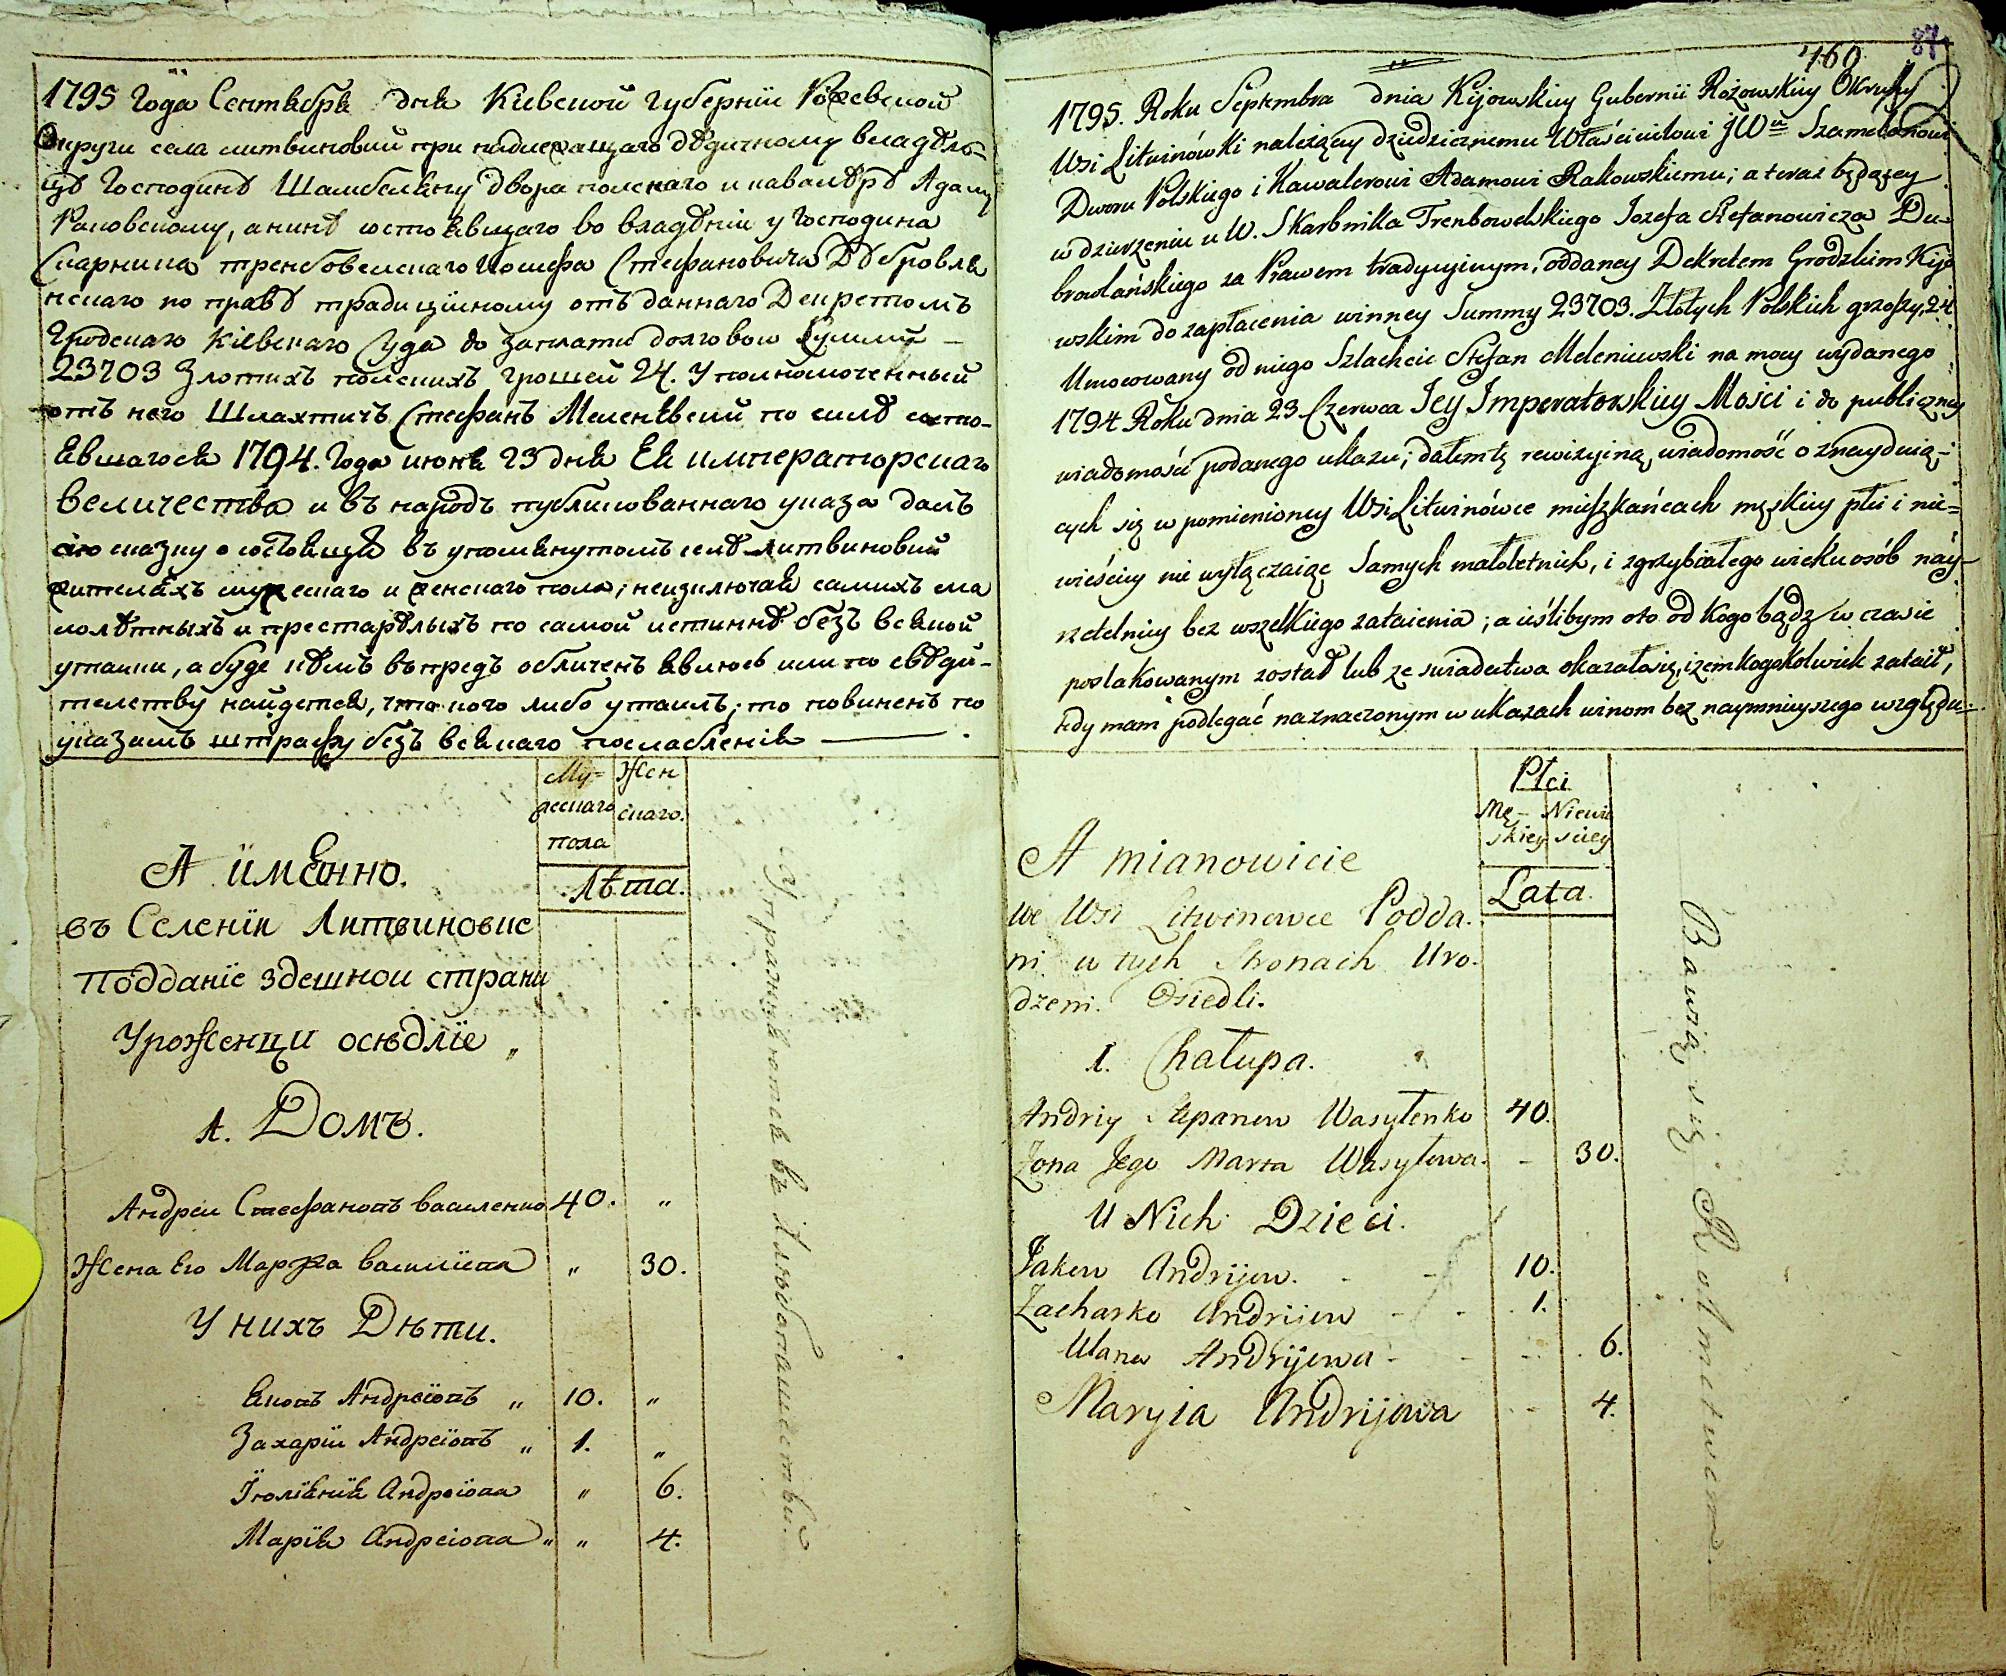 1795 Года Сентебра дня Кіевской Губерніи Рожевской
Округи села литвиновки принадлежащаго дѣдичному владѣль-
цѣ Господинѣ Шамбеляну двора полскаго и кавалѣрѣ Адаму
Раковскому, а нинѣ состоявщаго во владѣніи у Господина
Скарника тренбовелскаго Иосифа Стефановича Дѣбровля
нскаго по правѣ традиційному отъ даннаго Декретомъ
Гродскаго Кіевскаго Суда до заплати долговой Суммы –
23703 Злотихъ полскихъ грошей 24. Уполномоченный
отъ него Шляхтичъ Стефанъ Меленѣвскій по силѣ состо-
явшагося 1794. Года июня 23 дня Ея императорскаго
величества и въ народъ публикованнаго указа далъ
сію сказку о состоящихъ въ упомянутомъ селѣ литвиновки
жителяхъ мужескаго и женскаго пола; неизключая самихъ ма
лолѣтныхъ и престарѣлыхъ по самой истиннѣ безъ всякой
утайки, а буде кѣмъ въпредъ обличенъ явлюсь или по свѣди-
телству найдется, что кого либо утаилъ; то повиненъ по
указамъ штрафу безъ всякаго послабленія — .
Му-
жескаго
пола
Жен
скаго.
А именно.
.Лѣта.
въ Селеніи Литвиновке
Подданіе здешнои страни
Уроженци осѣдліе „
1. Домъ.
Андреи Стефановъ василенко 40. „
Жена Его Марфа василіева „ 30.
У нихъ Дѣти.
Яковъ Андреіовъ „ 10. „
Захаріи Андреіовъ „ 1. „
Іюліянія Андреіова „ 6.
Марія Андреіова „ „ 4.
въ хлѣбопашествѣ.
87.
460
1795. Roku Septembra dnia Kijowskiey Gubernii Rożowskiey Okruhy
Wsi Litwinówki należącey dziedzicznemu Właścicielowi JWu Szambelanowi
Dworu Polskiego i Kawalerowi Adamowi Rakowskiemu; a teraz będącey
w dzierżeniu u W. Skarbnika Trenbowelskiego Jozefa Stefanowicza Du-
browlańskiego za Prawem tradycyinym, oddaney Dekretem Grodzkim Kijo
wskim do zapłacenia winney Summy 23703. Złotych Polskich groszy 24.
Umocowany od niego Szlachcic Stefan Meleniewski na mocy wydanego
1794 Roku dnia 23 Czerwca Jey Imperatorskiey Mości i do publiczney
wiadomości podanego ukazu; dałem tę rewizyiną wiadomość o znayduią-
cych się w pomienioney Wsi Litwinówce mieszkańcach męskiey płci i nie=
wieściey nie wyłączaiąc samych małoletnich, i zgrzybiałego wieku osób náy-
rzetelniey bez wszelkiego zataienia; a ieślibym oto od kogo bądź w czasie
poslakowanym został lub ze swiadectwa okazałosię, iżem kogokolwiek zataił,
tedy mam podlegać naznaczonym w ukazach winom bez naymnieyszego względu.
Płci
Mę- skiey
Niewie sciey
A mianowicie
Lata.
we Wsi Litwinowce Podda.
ni w tych Stronach Uro.
dzeni. Osiedli.
1. Chałupa.
Andriy Stepanow Wasylenko 40.
Zona Jego Marta Wasylowa. - 30.
U Nich Dzieci.
Jakow Andrijow. - - 10.
Zacharko Andriiow - - 1.
Ulana Andrijowa - - - 6.
Maryia Andrijowa - - 4.
Bawią się Rolnictwem.